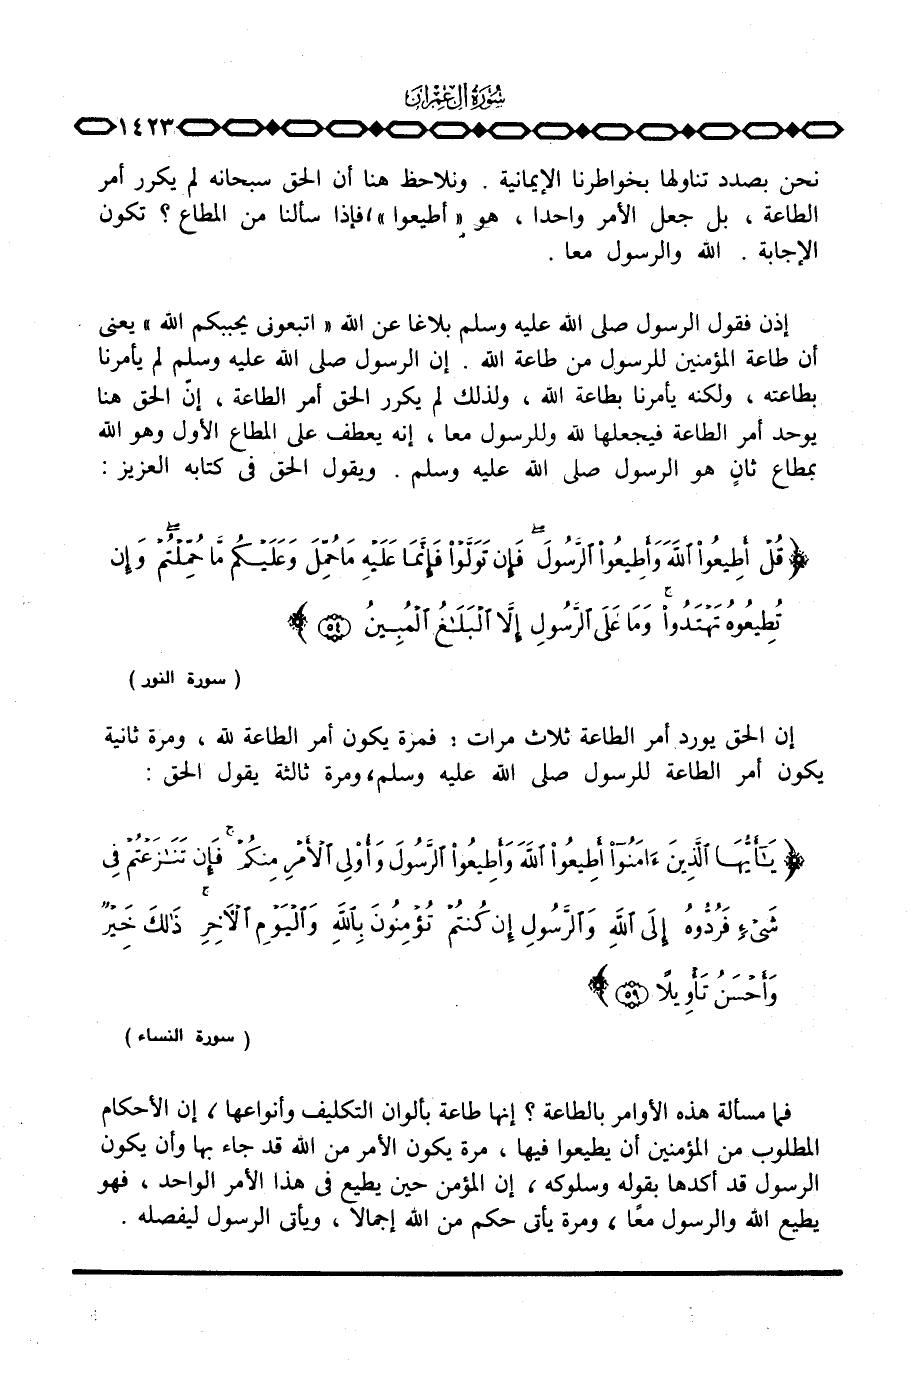 سُورَةُ آلِ عِمْرَانَ
١٤٢٣
نحن بصدد تناولها بخواطرنا الإيمانية . ونلاحظ هنا أن الحق سبحانه لم يكرر أمر
الطاعة ، بل جعل الأمر واحدا ، هو « أطيعوا »، فإذا سألنا من المطاع ؟ تكون
الإجابة . الله والرسول معا .
إذن فقول الرسول صلى الله عليه وسلم بلاغا عن الله « اتبعونى يحببكم الله » يعنى
أن طاعة المؤمنين للرسول من طاعة الله . إن الرسول صلى الله عليه وسلم لم يأمرنا
بطاعته ، ولكنه يأمرنا بطاعة الله ، ولذلك لم يكرر الحق أمر الطاعة ، إنّ الحق هنا
يوحد أمر الطاعة فيجعلها لله وللرسول معا ، إنه يعطف على المطاع الأول وهو الله
بمطاع ثانٍ هو الرسول صلى الله عليه وسلم . ويقول الحق فى كتابه العزيز :
﴿ قُلْ أَطِيعُوا۟ ٱللَّهَ وَأَطِيعُوا۟ ٱلرَّسُولَ ۖ فَإِن تَوَلَّوْا۟ فَإِنَّمَا عَلَيْهِ مَا حُمِّلَ وَعَلَيْكُم مَّا حُمِّلْتُمْ ۖ وَإِن
تُطِيعُوهُ تَهْتَدُوا۟ ۚ وَمَا عَلَى ٱلرَّسُولِ إِلَّا ٱلْبَلَـٰغُ ٱلْمُبِينُ ٥٤ ﴾
( سورة النور )
إن الحق يورد أمر الطاعة ثلاث مرات : فمرة يكون أمر الطاعة لله ، ومرة ثانية
يكون أمر الطاعة للرسول صلى الله عليه وسلم، ومرة ثالثة يقول الحق :
﴿ يَـٰٓأَيُّهَا ٱلَّذِينَ ءَامَنُوٓا۟ أَطِيعُوا۟ ٱللَّهَ وَأَطِيعُوا۟ ٱلرَّسُولَ وَأُو۟لِى ٱلْأَمْرِ مِنكُمْ ۚ فَإِن تَنَـٰزَعْتُمْ فِى
شَىْءٍ فَرُدُّوهُ إِلَى ٱللَّهِ وَٱلرَّسُولِ إِن كُنتُمْ تُؤْمِنُونَ بِٱللَّهِ وَٱلْيَوْمِ ٱلْـَٔاخِرِ ۚ ذَٰلِكَ خَيْرٌ
وَأَحْسَنُ تَأْوِيلًا ٥٩ ﴾
( سورة النساء )
فما مسألة هذه الأوامر بالطاعة ؟ إنها طاعة بألوان التكليف وأنواعها ، إن الأحكام
المطلوب من المؤمنين أن يطيعوا فيها ، مرة يكون الأمر من الله قد جاء بها وأن يكون
الرسول قد أكدها بقوله وسلوكه ، إن المؤمن حين يطيع فى هذا الأمر الواحد ، فهو
يطيع الله والرسول معًا ، ومرة يأتى حكم من الله إجمالا ، ويأتى الرسول ليفصله .